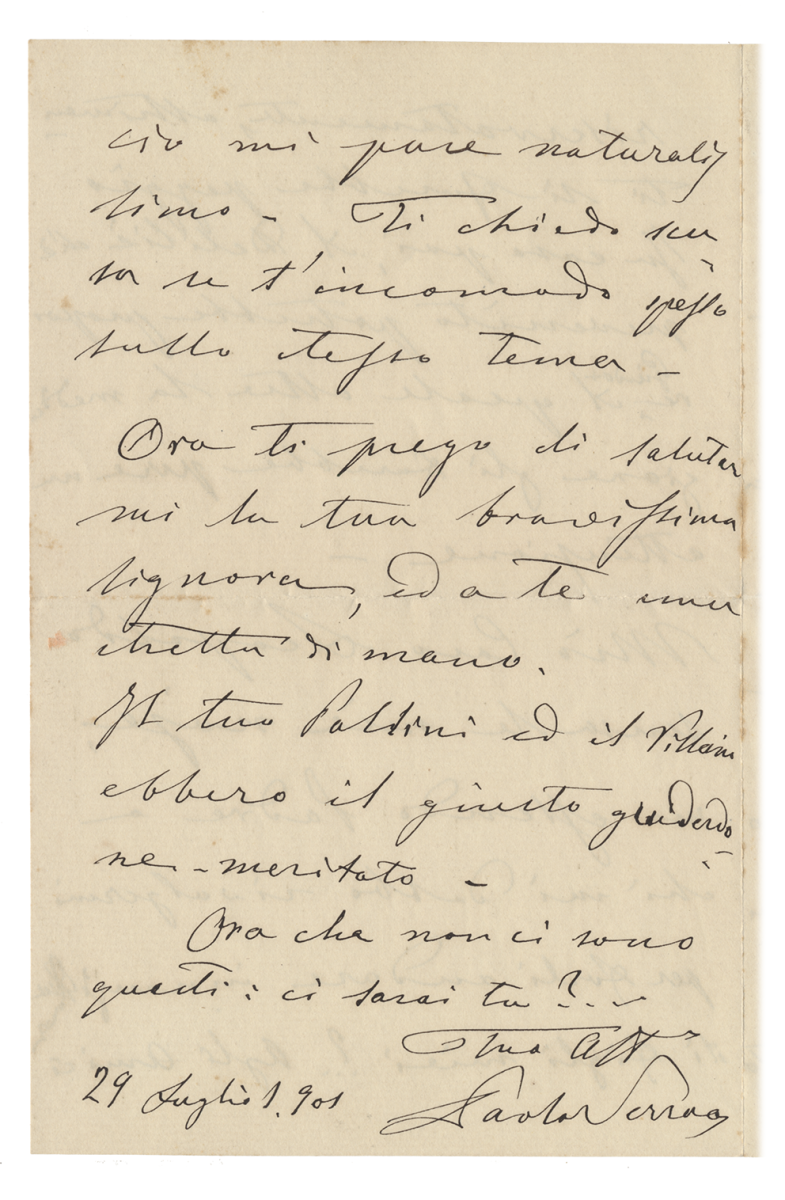 ciò mi pare naturalis
simo - Ti chiedo scu
sa se t'incomodo spesso
sullo stesso tema -
Ora ti prego di salutar
mi la tua bravissima
signora, ed a te una
stretta di mano.
Il tuo Paldini ed il Villani
ebbero il giusto guiderdo
ne - meritato -
Ora che non ci sono
questi: ci sarai tu?..-
Tuo Aff
29 Luglio 1.901 Paolo Serrao